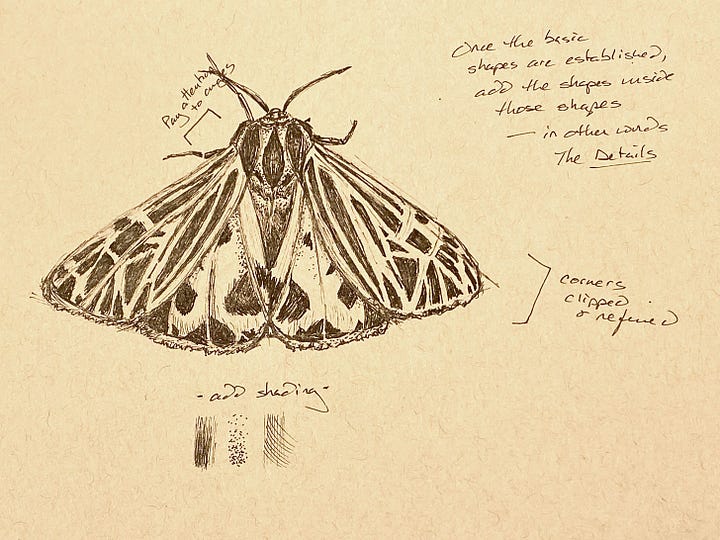 Pay attention
to angles
Once the basic
shapes are established,
add the shapes inside
those shapes
— in other words
The Details
corners
clipped
& refined
- add shading -